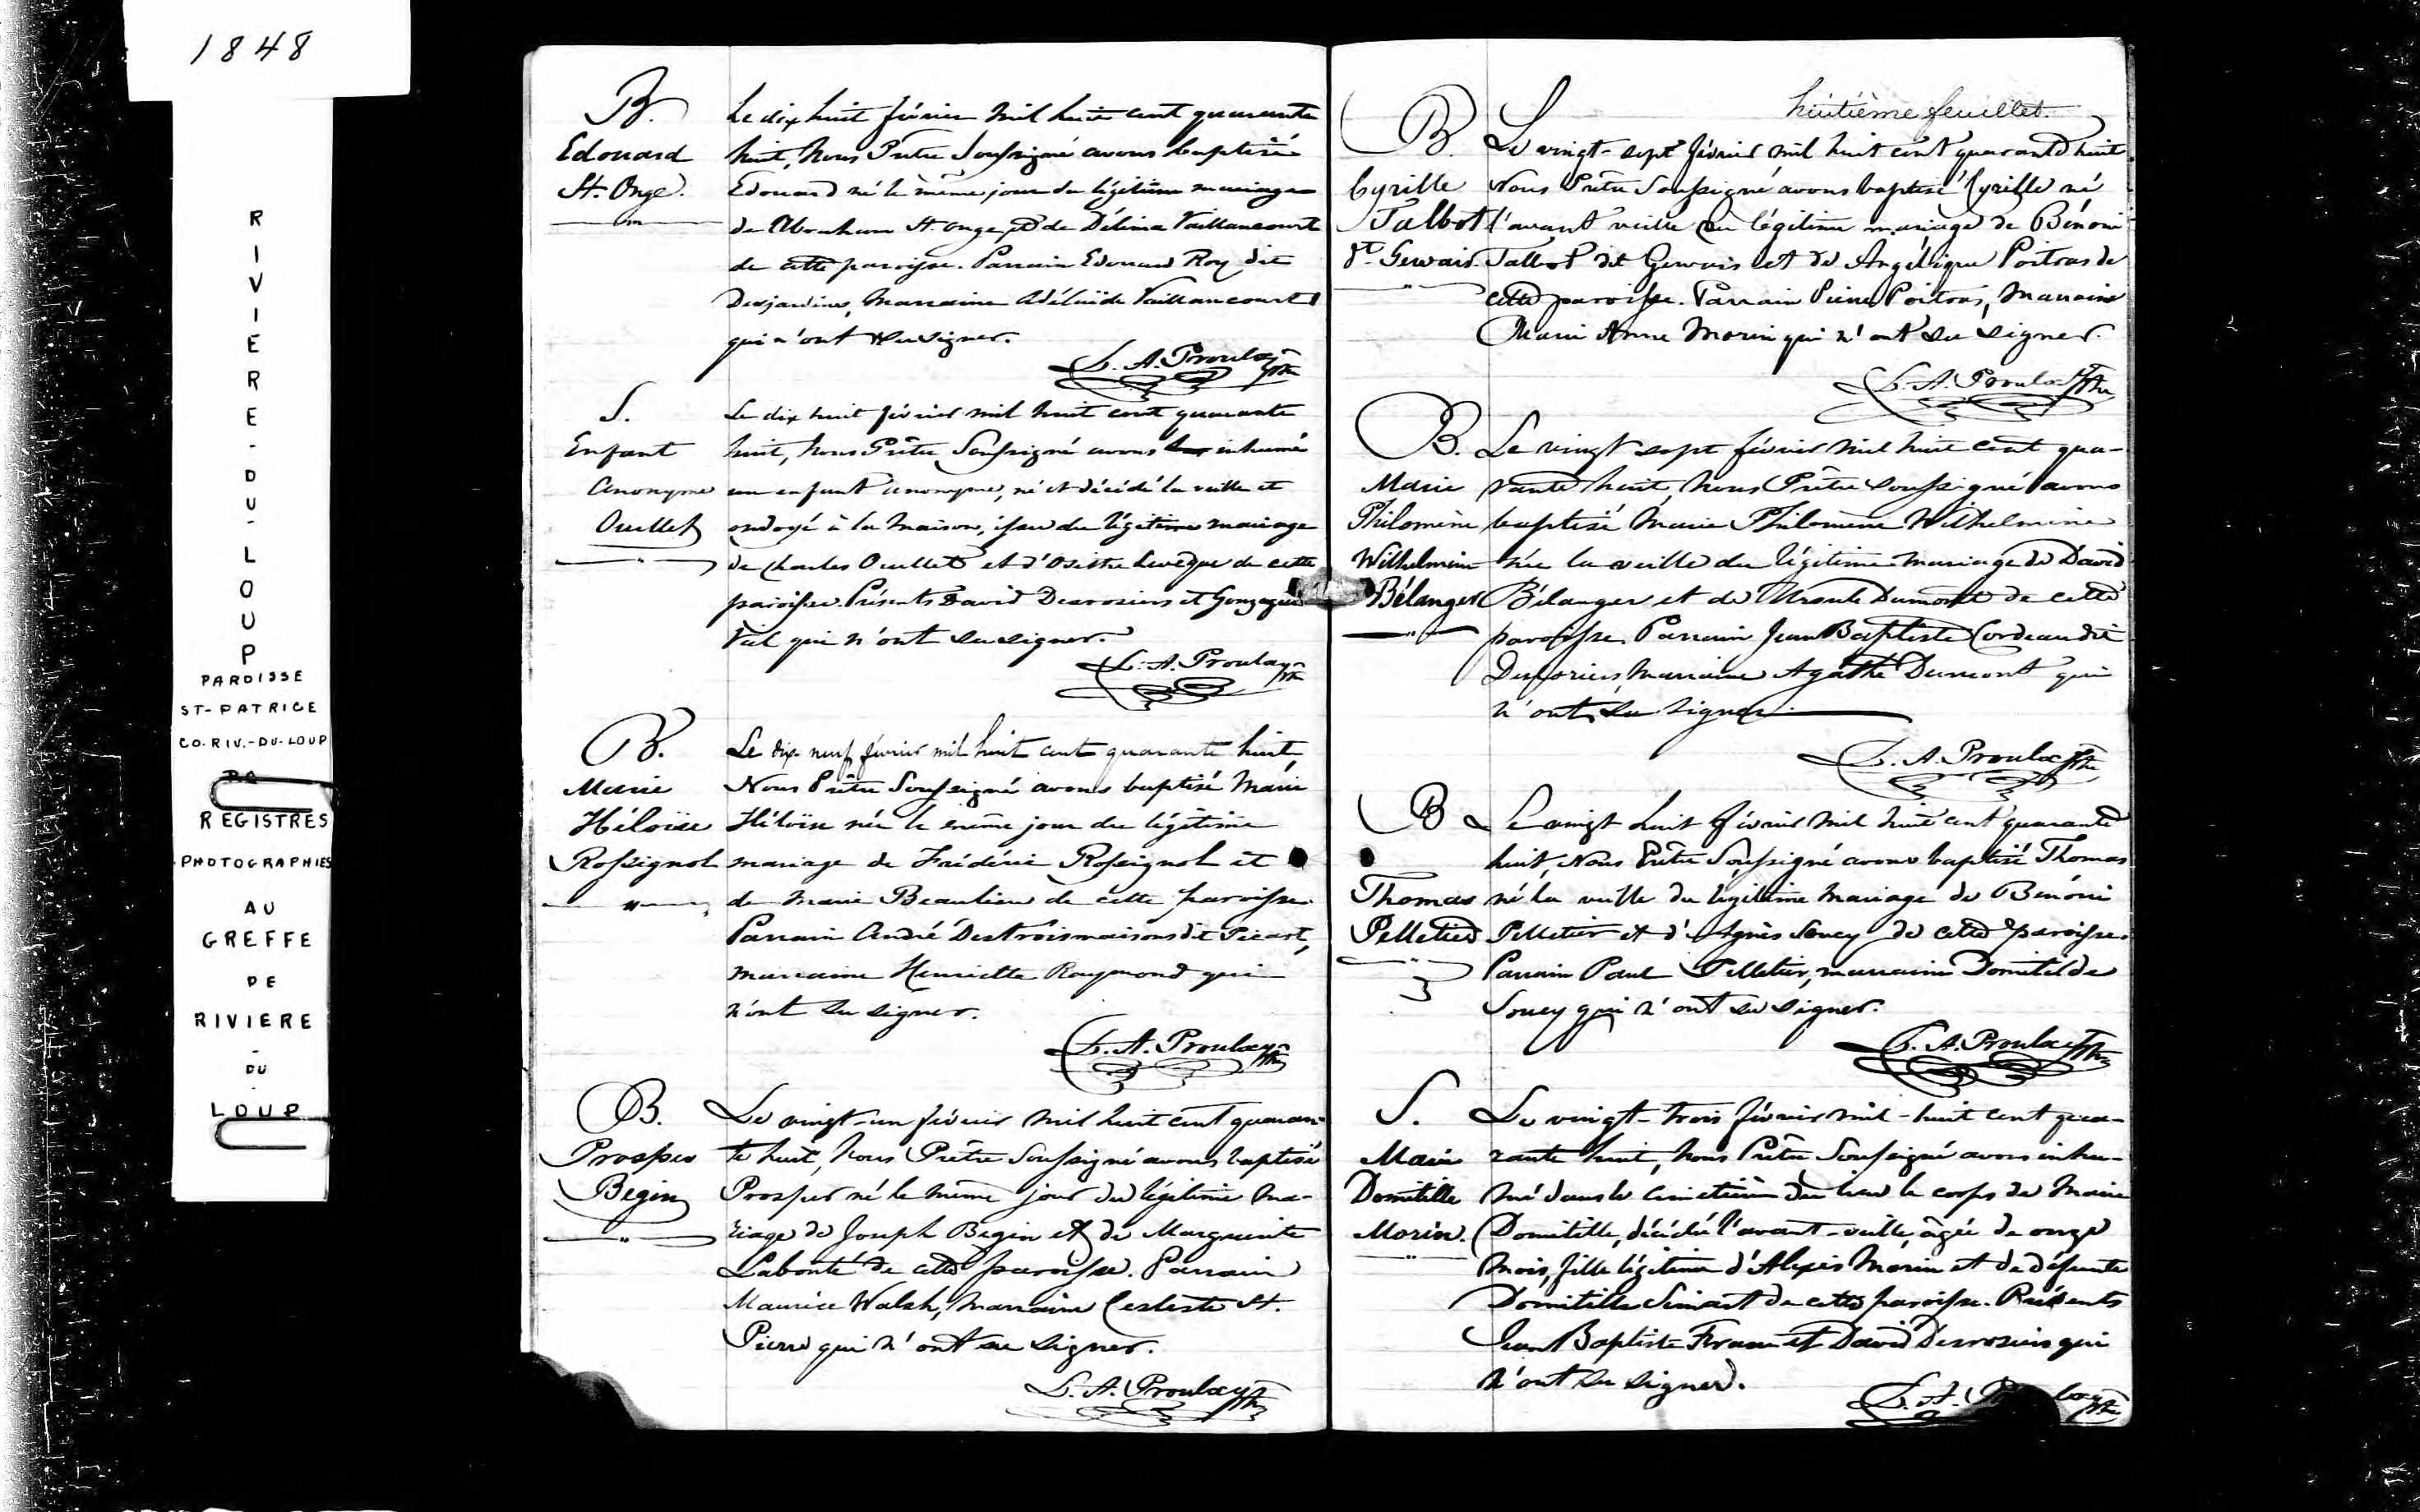 1848
RIVIERE-DU-LOUP
PAROISSE
ST-PATRICE
CO. RIV.-DU-LOUP
REGISTRES
PHOTOGRAPHIES
AU
GREFFE
DE
RIVIERE
-
DU
-
LOUP
B.
Edouard
St. Onge.
Le dix huit février mil huit cent quarante
huit, Nous Prêtre Soussigné avons baptisé
Edouard né le même jour du légitime mariage
de Abraham St. Onge et de Délima Vaillancourt
de cette paroisse. Parrain Edouard Roy dit
Desjardins, Marraine Adélaïde Vaillancourt
qui n'ont su signer.
L. A. Proulx Ptre
S.
Enfant
Anonyme
Ouellet
Le dix huit février mil huit cent quarante
huit, Nous Prêtre Soussigné avons inhumé
un enfant anonyme, né et décédé la veille et
ondoyé à la maison, issu du légitime mariage
de Charles Ouellet et d'Osithe Levêque de cette
paroisse. Présents David Desrosiers et Gonzague
Viel qui n'ont su signer.
L. A. Proulx Ptre
B.
Marie
Héloïse
Rossignol
Le dix neuf février mil huit cent quarante huit,
Nous Prêtre Soussigné avons baptisé Marie
Héloïse née le même jour du légitime
mariage de Frédéric Rossignol et
de Marie Beaulieu de cette paroisse.
Parrain André Destroismaisons dit Picart,
marraine Henriette Raymond qui
n'ont su signer.
L. A. Proulx Ptre
B.
Prosper
Begin
Le vingt-un février mil huit cent quaran-
te huit, Nous Prêtre Soussigné avons baptisé
Prosper né le même jour du légitime ma-
riage de Joseph Begin et de Marguerite
Labonté de cette paroisse. Parrain
Maurice Walsh, Marraine Celeste St.
Pierre qui n'ont su signer.
L. A. Proulx Ptre
huitième feuillet.
B.
Cyrille
Talbot
dt. Gervais.
Le vingt-sept février mil huit cent quarante huit
Nous Prêtre Soussigné avons baptisé Cyrille né
l'avant veille du légitime mariage de Bénoni
Talbot dit Gervais et de Angélique Poitras de
cette paroisse. Parrain Pierre Poitras, Marraine
Marie Anne Morin qui n'ont su signer.
L. A. Proulx Ptre
B.
Marie
Philomène
Wilhelmine
Bélanger
Le vingt sept février mil huit cent qua-
rante huit, Nous Prêtre soussigné avons
baptisé Marie Philomène Wilhelmine
née la veille du légitime mariage de David
Bélanger et de Ursule Dumont de cette
paroisse. Parrain Jean Baptiste Cordeau dit
Desloriers, Marraine Agathe Dumont qui
n'ont su signer.
L. A. Proulx Ptre
B
Thomas
Pelletier
Le vingt huit février mil huit cent quarante
huit, Nous Prêtre Soussigné avons baptisé Thomas
né la veille du légitime mariage de Bénoni
Pelletier et d'Agnès Soucy de cette paroisse.
Parrain Paul Pelletier, marraine Domitilde
Soucy qui n'ont su signer.
L. A. Proulx Ptre
S.
Marie
Domitille
Morin.
Le vingt-trois février mil-huit cent qua-
rante huit, Nous Prêtre Soussigné avons inhu-
mé dans le cimetière du lieu le corps de Marie
Domitille, décédé l'avant-veille, âgée de onze
mois, fille légitime d'Alexis Morin et de défunte
Domitille Simart de cette paroisse. Présents
Jean Baptiste et David Desrosiers qui
n'ont su signer.
L. A. Ptre